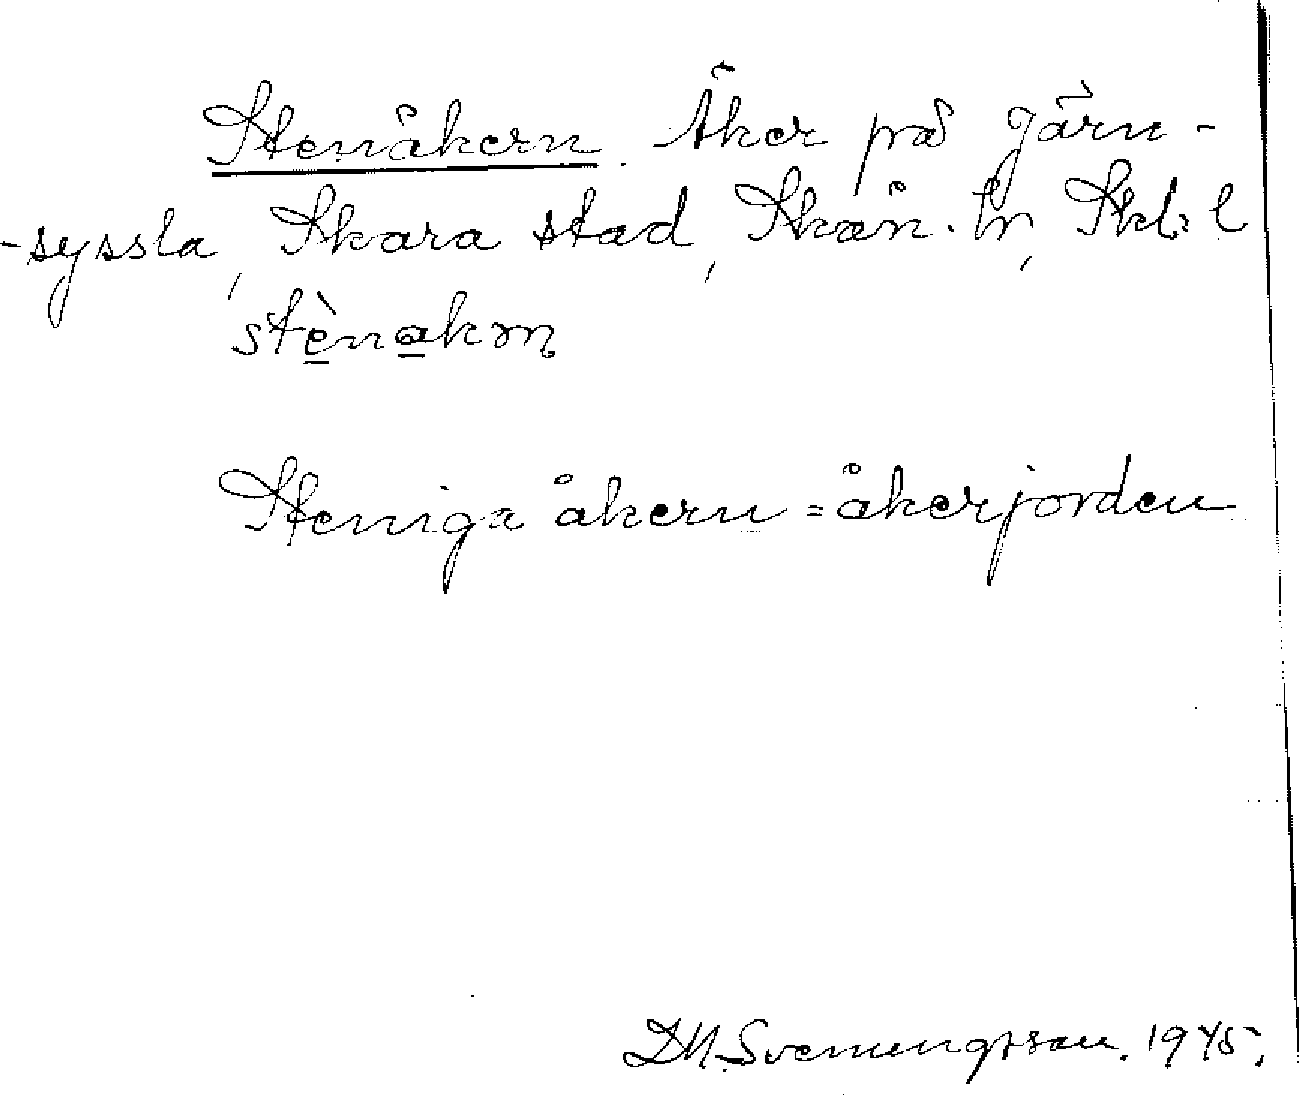 Stenåkern. Åker på Järn-
-syssla, Skara stad, Skån. hr, Skb. l
stènakrn
Steniga åkern = åkerjorden
D.N. Svenungsson. 1945.